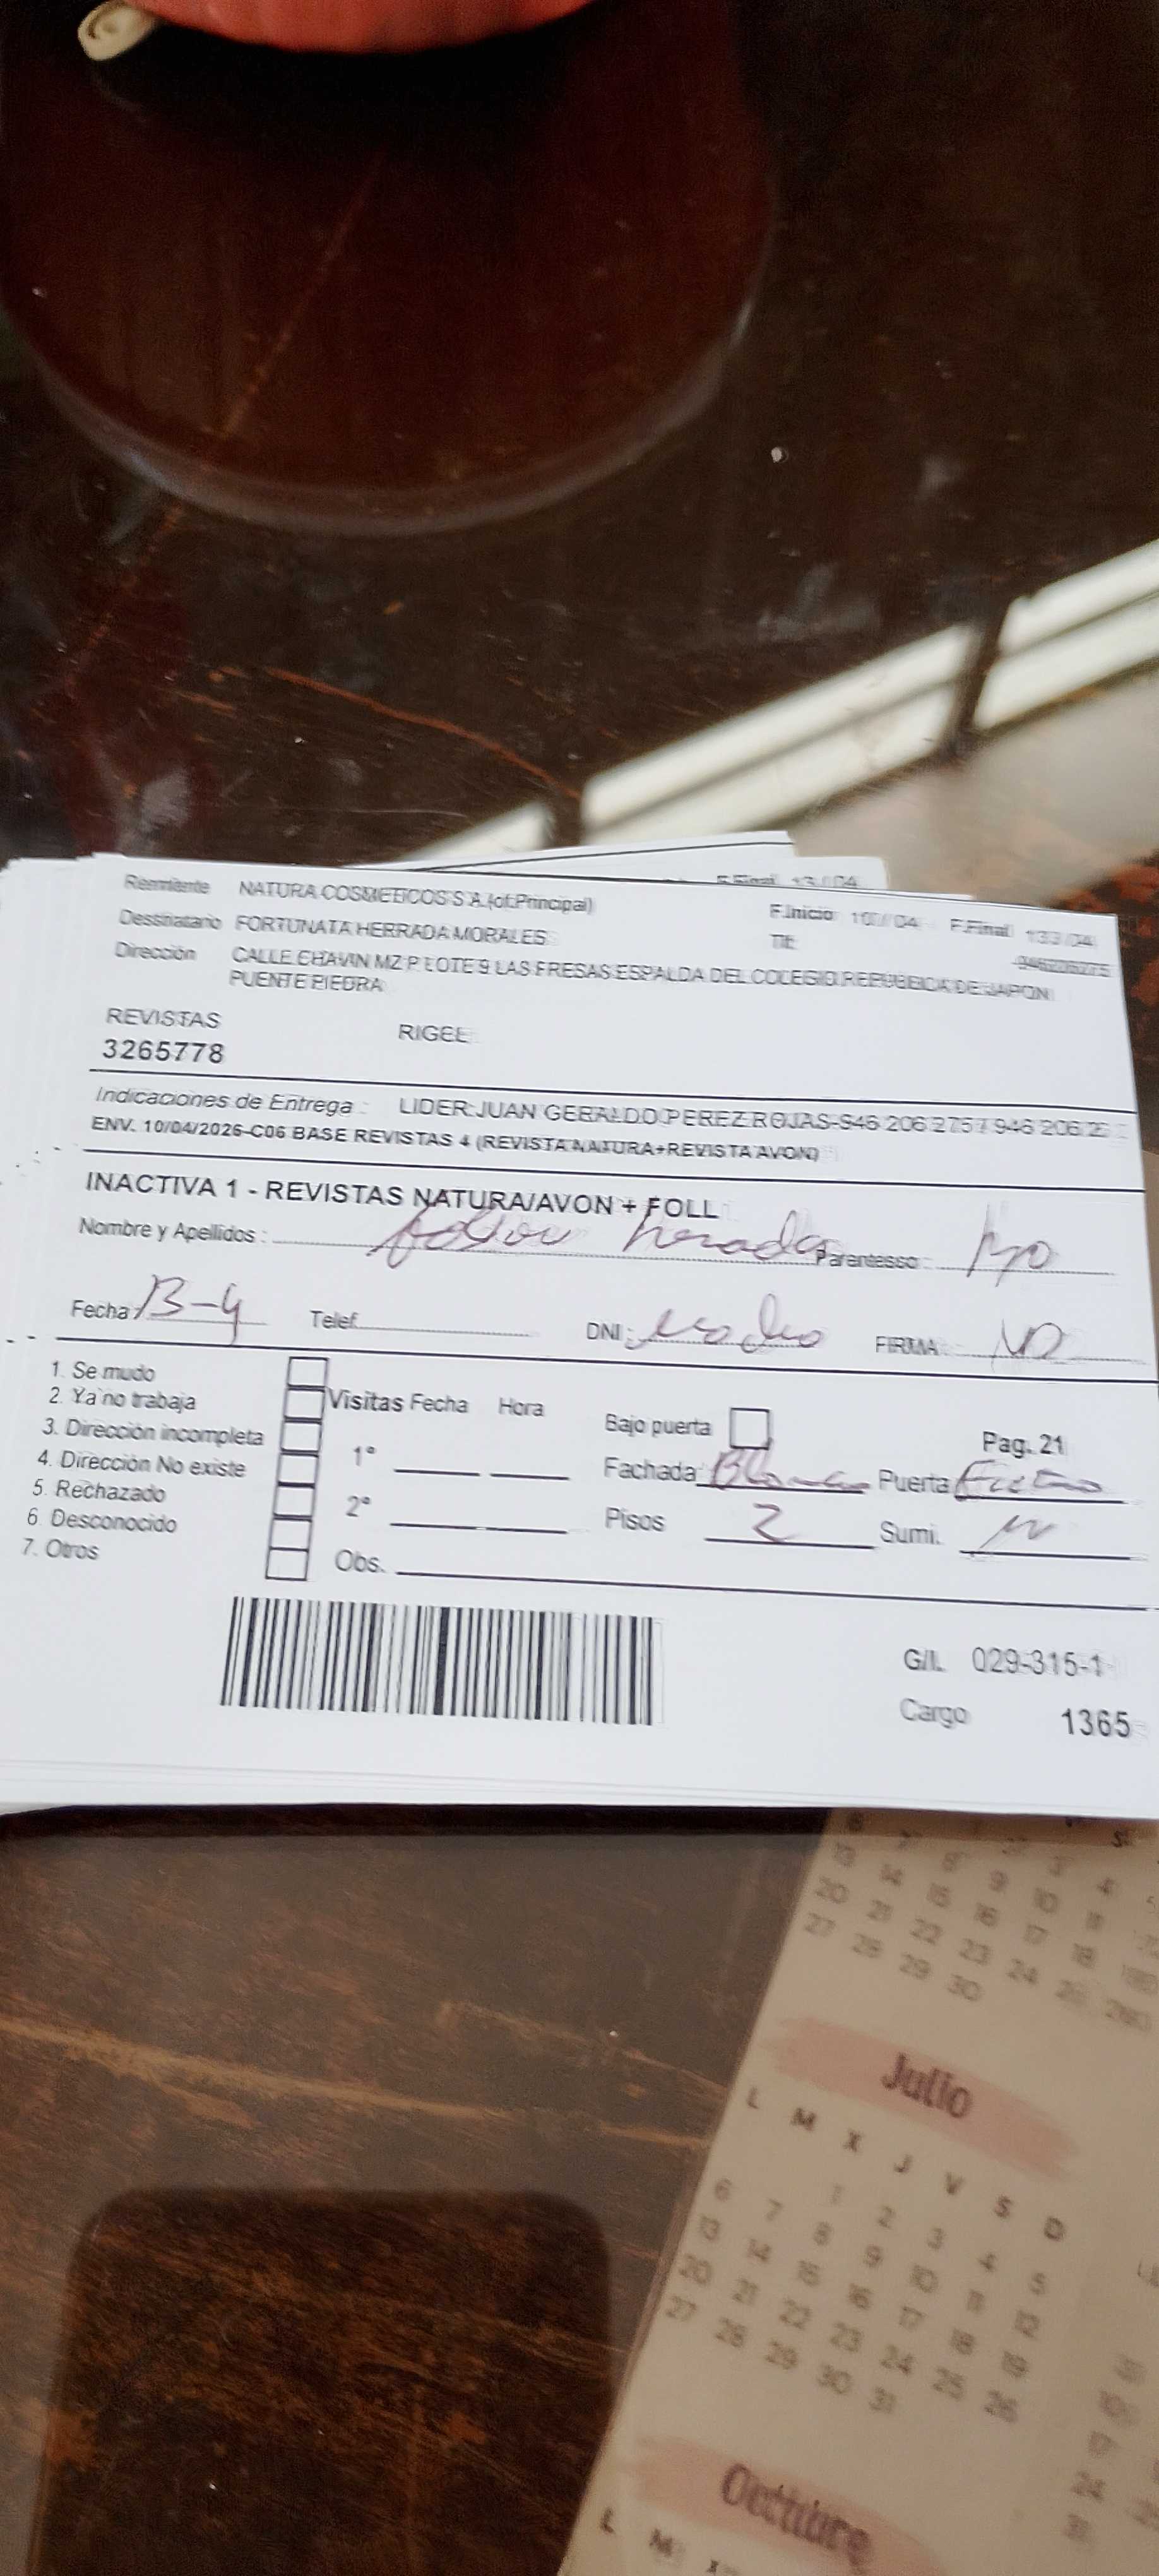 F.Final 13/04
Remitente NATURA COSMETICOS S.A.(of.Principal) F.Inicio 10/04 F.Final 13/04
Destinatario FORTUNATA HERRADA MORALES Tlf:
Dirección CALLE CHAVIN MZ P LOTE 9 LAS FRESAS ESPALDA DEL COLEGIO REPUBLICA DE JAPON
PUENTE PIEDRA
REVISTAS RIGEL
3265778
Indicaciones de Entrega : LIDER:JUAN GERALDO PEREZ ROJAS-946 206 275 / 946 206 2
ENV. 10/04/2026-C06 BASE REVISTAS 4 (REVISTA NATURA+REVISTA AVON)
INACTIVA 1 - REVISTAS NATURA/AVON + FOLL
Nombre y Apellidos : Parentesso :
Fecha: 13-4 Telef. DNI : FIRMA :
1. Se mudo
2. Ya no trabaja Visitas Fecha Hora Bajo puerta
3. Dirección incompleta 1° Pag. 21
4. Dirección No existe Fachada: Puerta
5. Rechazado 2° Pisos 2 Sumi.
6 Desconocido
7. Otros Obs.
G/L 029-315-1
Cargo 1365
6 7
13 14 15 16 17 18
20 21 22 23 24 25
27 28 29 30
Julio
L M X J V S D
1 2 3 4 5
6 7 8 9 10 11 12
13 14 15 16 17 18 19
20 21 22 23 24 25 26
27 28 29 30 31
Octubre
L M X